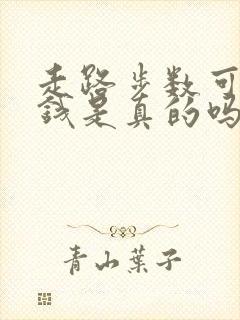 走路步数可
钱是真的吗
青山葉子